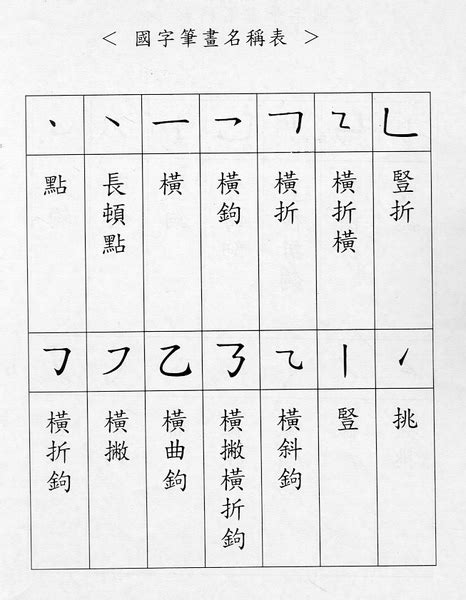 < 國字筆畫名稱表 >
丶 ㇔ 一 ㇖ ㇕ ㇅ ㇗
點
長頓點
橫
橫鉤
橫折
橫折橫
豎折
㇆ ㇇ 乙 ㇡ ㇈ 丨 ㇀
橫折鉤
橫撇
橫曲鉤
橫撇橫折鉤
橫斜鉤
豎
挑